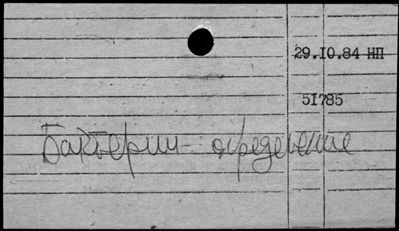 29.10.84 НП
51785
Бактерии - определение